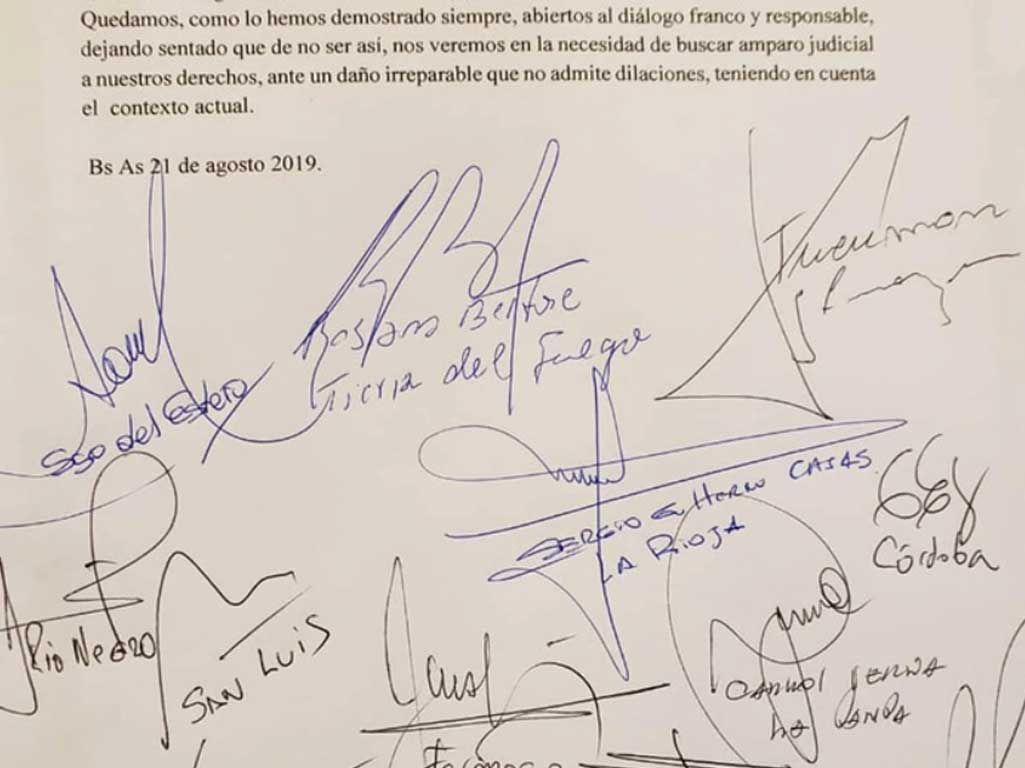 Quedamos, como lo hemos demostrado siempre, abiertos al diálogo franco y responsable,
dejando sentado que de no ser así, nos veremos en la necesidad de buscar amparo judicial
a nuestros derechos, ante un daño irreparable que no admite dilaciones, teniendo en cuenta
el contexto actual.
Bs As 21 de agosto 2019.
Tucuman
Tierra del Fuego
Sgo del Estero
CASAS
SERGIO G
LA RIOJA
Córdoba
Rio Negro
SAN LUIS
LA PAMPA